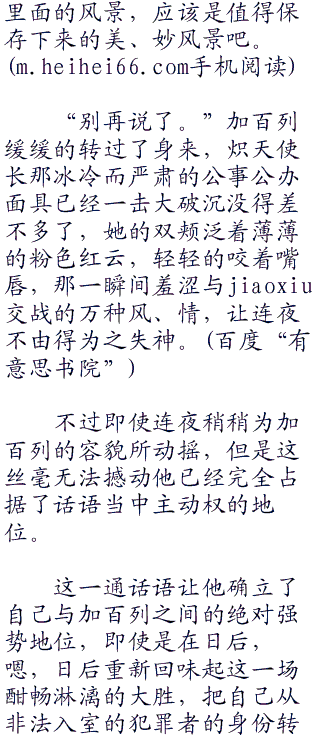 里面的风景，应该是值得保
存下来的美、妙风景吧。
(m.heihei66.com手机阅读)
“别再说了。”加百列
缓缓的转过了身来，炽天使
长那冰冷而严肃的公事公办
面具已经一击大破沉没得差
不多了，她的双颊泛着薄薄
的粉色红云，轻轻的咬着嘴
唇，那一瞬间羞涩与jiaoxiu
交战的万种风、情，让连夜
不由得为之失神。(百度“有
意思书院”)
不过即使连夜稍稍为加
百列的容貌所动摇，但是这
丝毫无法撼动他已经完全占
据了话语当中主动权的地
位。
这一通话语让他确立了
自己与加百列之间的绝对强
势地位，即使是在日后，
嗯，日后重新回味起这一场
酣畅淋漓的大胜，把自己从
非法入室的犯罪者的身份转